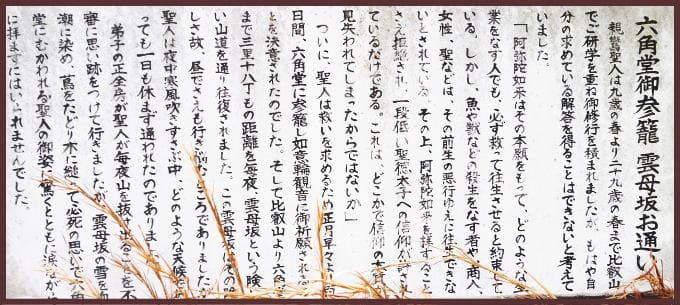 六角堂御参籠 雲母坂お通い
親鸞聖人は九歳の春より二十九歳の春まで比叡山
でご研学を重ね御修行を積まれましたが、もはや自
分の求めている解答を得ることはできないと考えて
いました。
「阿弥陀如来はその本願をもって、どのような
業をなす人でも、必ず救って往生させると約束して
いる。しかし、魚や獣などの殺生をなす者や、商人、
女性、聖などは、その前生の悪行ゆえに往生できな
いとされている。その上、阿弥陀如来を拝すること
さえ拒絶され、一段低い聖徳太子への信仰が許され
ているだけである。これは、どこかで信仰の
見失われてしまったからではないか」
ついに、聖人は救いを求めるため正月早々より
日間、六角堂に参籠し如意輪観音に御祈願される
とを決意されたのでした。そして比叡山より六角
まで三里十八丁もの距離を毎夜、雲母坂という険
い山道を通り往復されました。この雲母坂はその
しさ故、昼でさえも行き悩むところでありました
聖人は夜中寒風吹きすさぶ中、どのような天候
っても一日も休まず通われたのでありました。
弟子の正全房が聖人が毎夜山を抜け出ることを不
審に思い跡をつけて行きましたが、雲母坂の雪を血
潮に染め、蔦をたどり木に縋って必死の思いで六角
堂にむかわれる聖人の御姿に驚くとともに涙ながら
に拝まずにはいられませんでした。